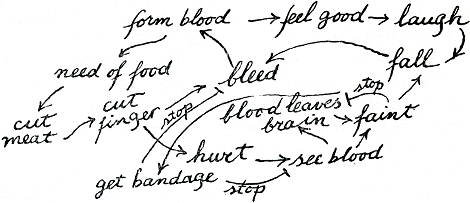 form blood
feel good
laugh
need of food
bleed
fall
cut
meat
cut
finger
stop
blood leaves
brain
stop
faint
hurt
see blood
get bandage
stop